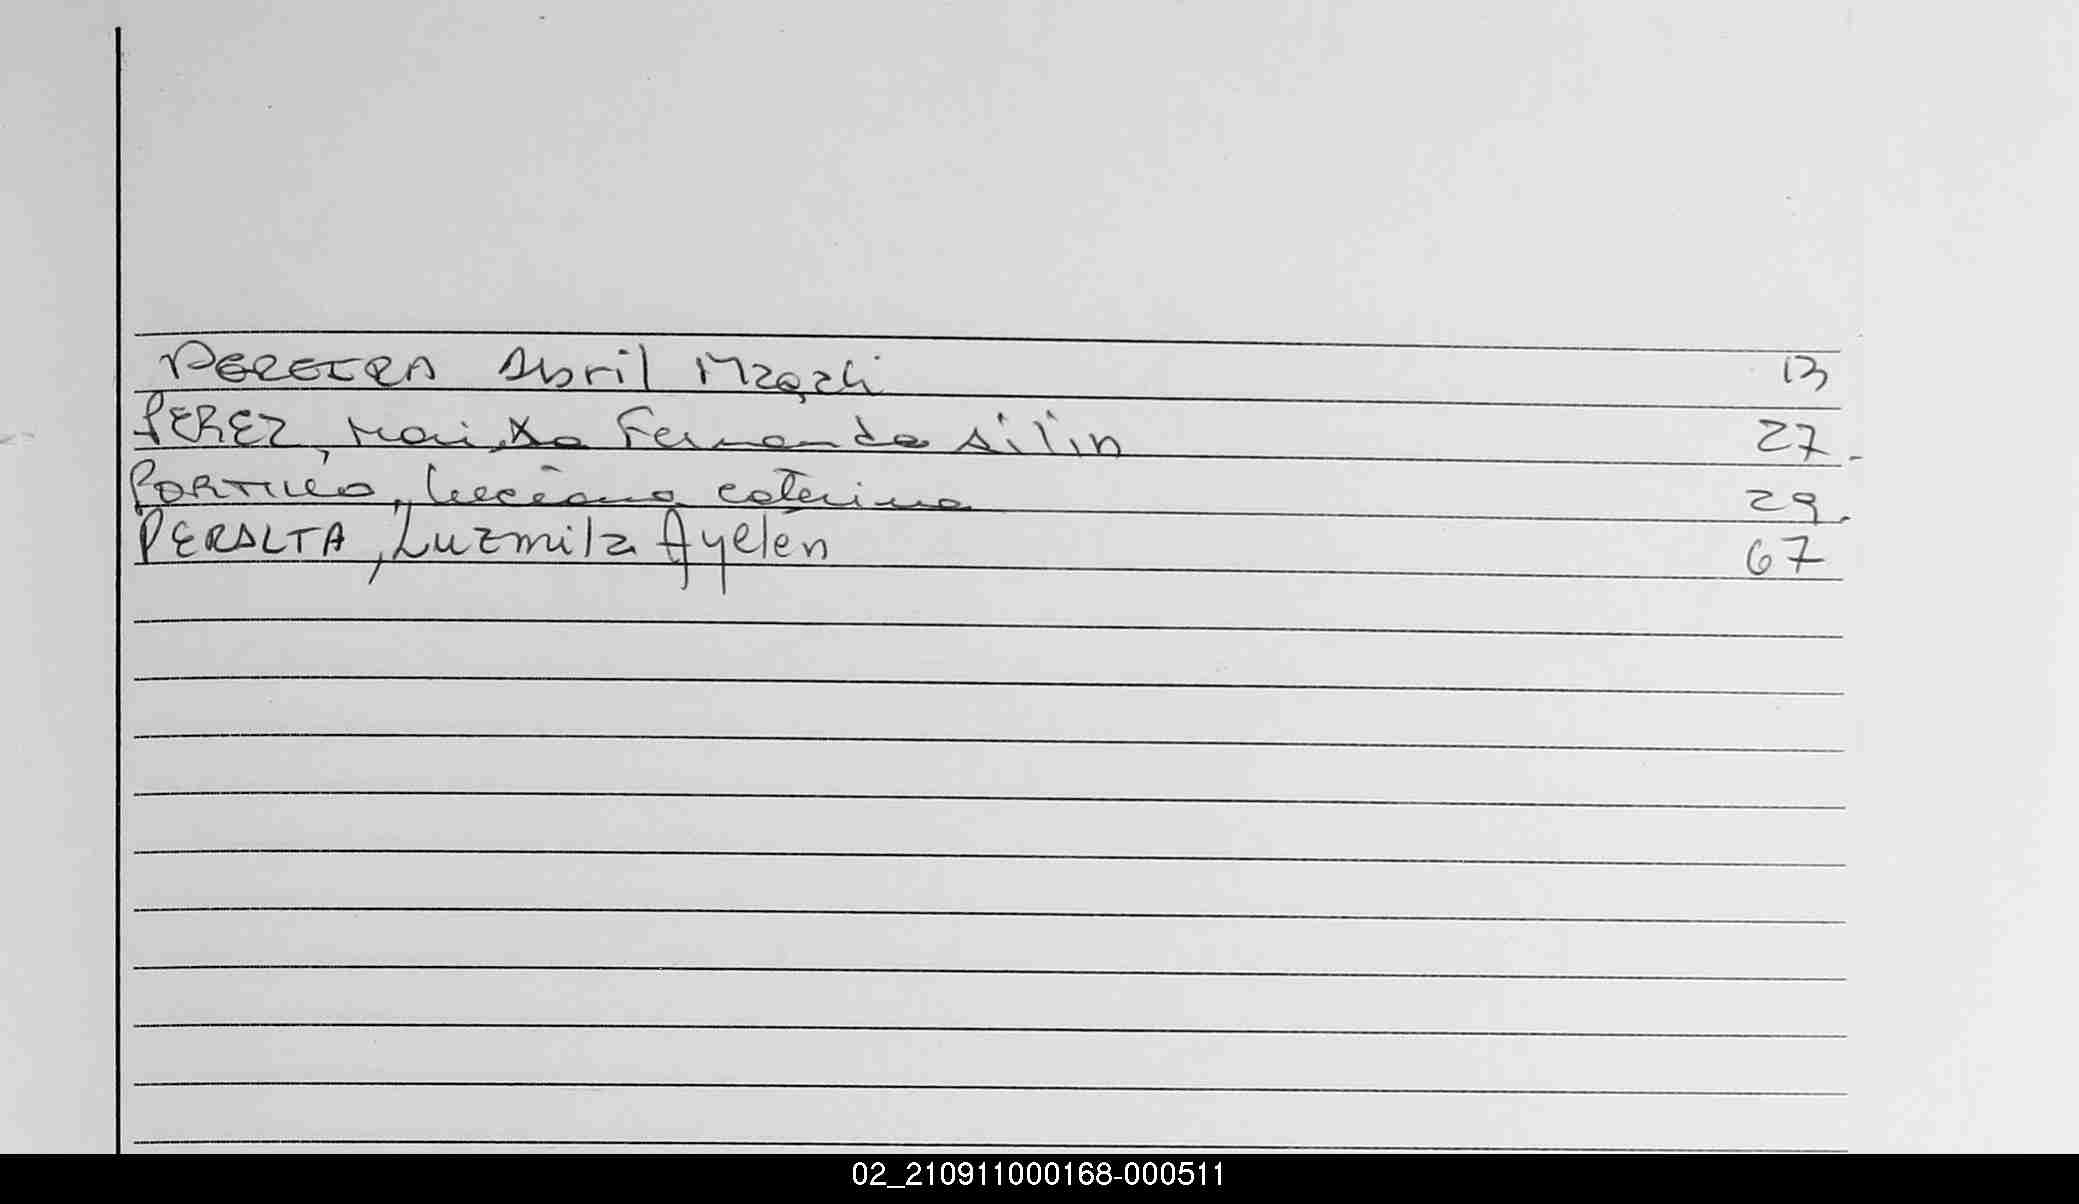 PEREIRA Abril Magali 13
PEREZ, Fernanda Ailin 27.
PORTILLO, Luciana Caterina 29.
PERALTA, Luzmila Ayelen 67
02_210911000168-000511